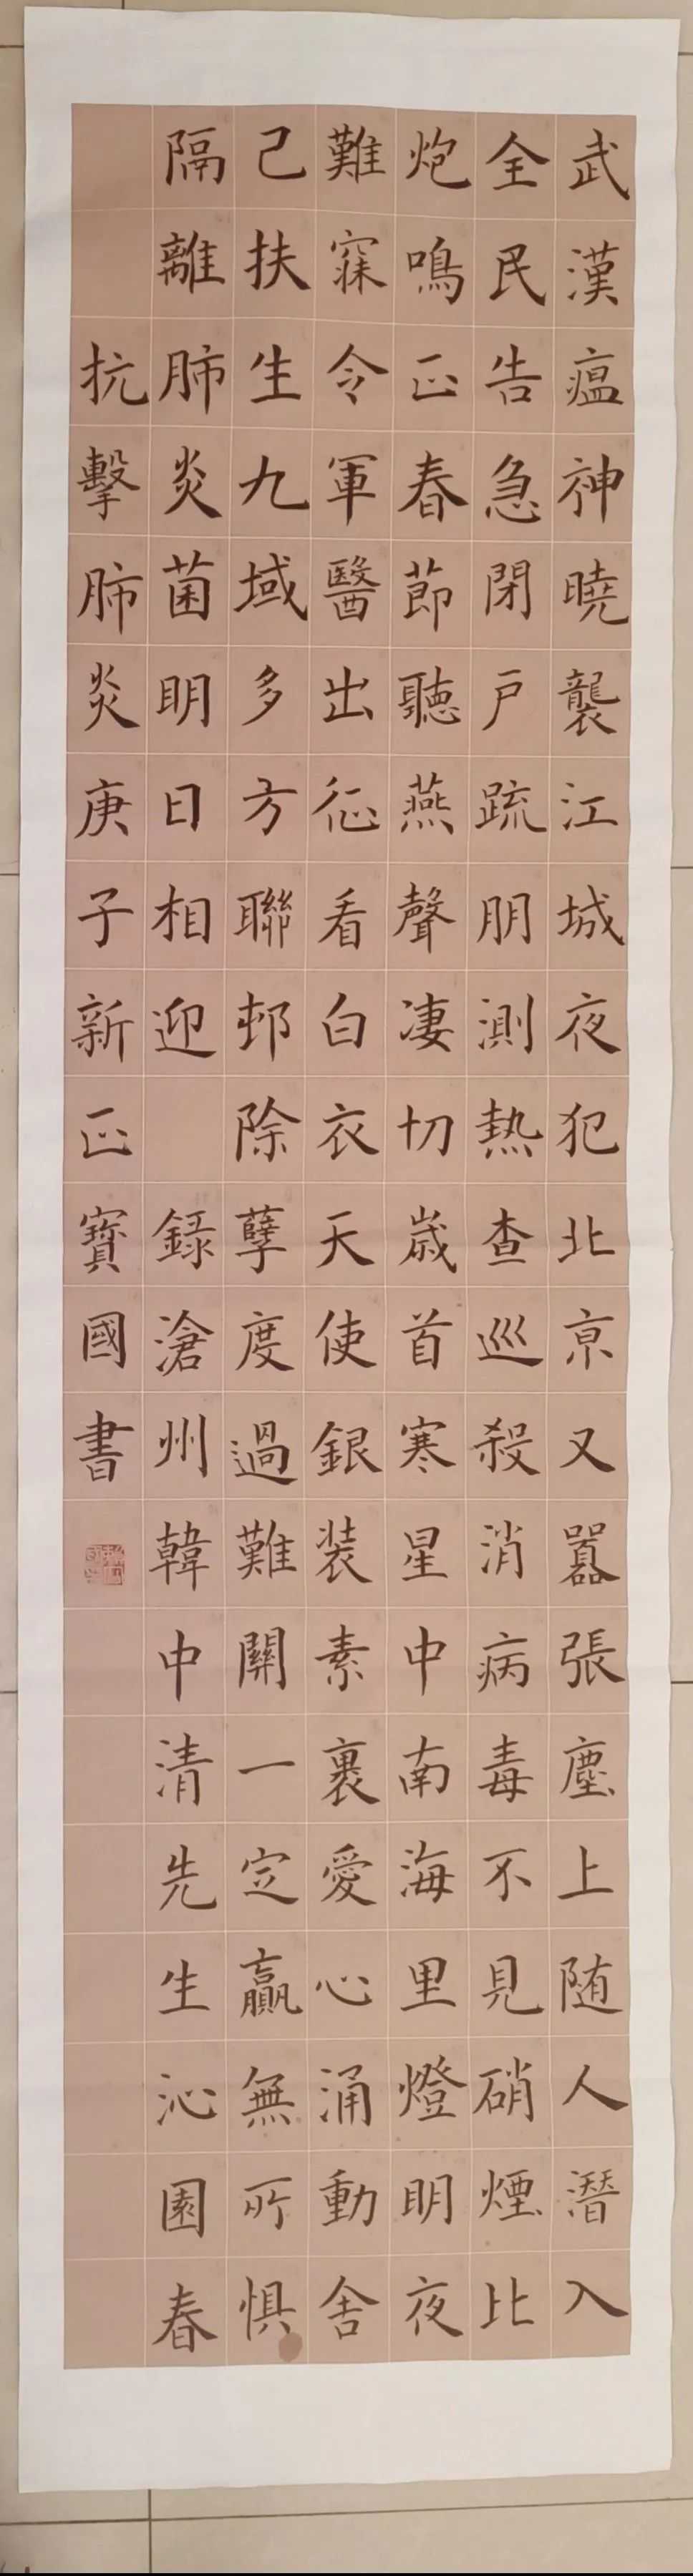 武漢瘟神曉襲江城夜犯北京又囂張塵上随人潛入
全民告急閉戸疏朋測熱查巡殺消病毒不見硝煙比
炮鳴正春節聽燕聲凄切歲首寒星中南海里燈明夜
難寐令軍醫出征看白衣天使銀装素裹愛心涌動舍
己扶生九域多方聯邨除孽度過難關一定贏無所惧
隔離肺炎菌明日相迎 錄滄州韓中清先生沁園春
抗擊肺炎庚子新正寶國書